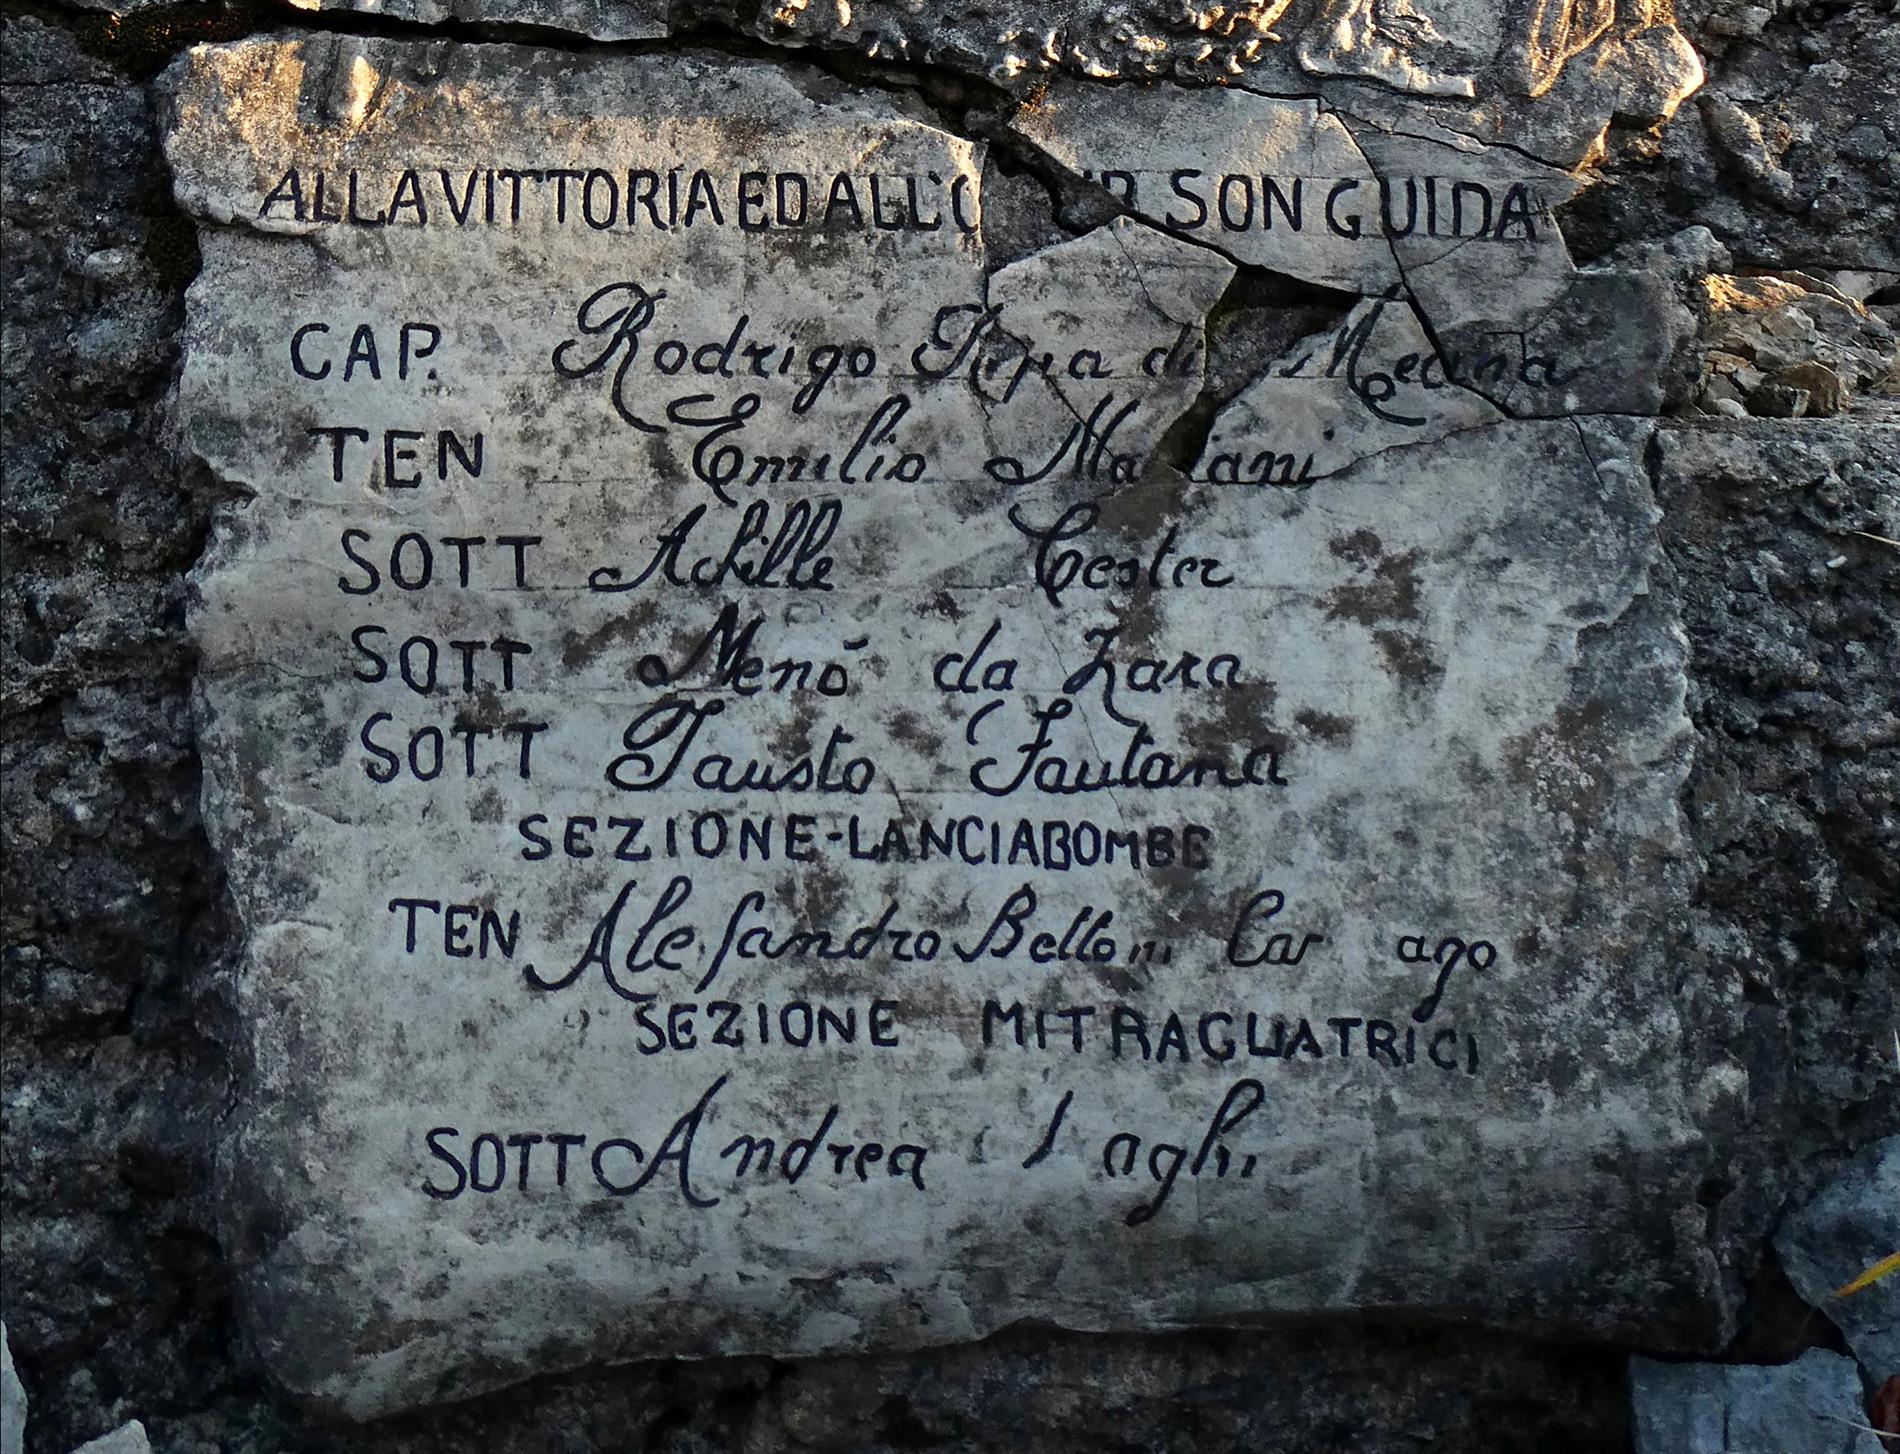 ALLA VITTORIA ED ALL'O R SON GUIDA
CAP. Rodrigo di Medina
TEN Emilio
SOTT Achille Cester
SOTT Menó da Zara
SOTT Fausto Fautana
SEZIONE-LANCIABOMBE
TEN Alesandro Belloni
SEZIONE MITRAGLIATRICI
SOTT Andrea